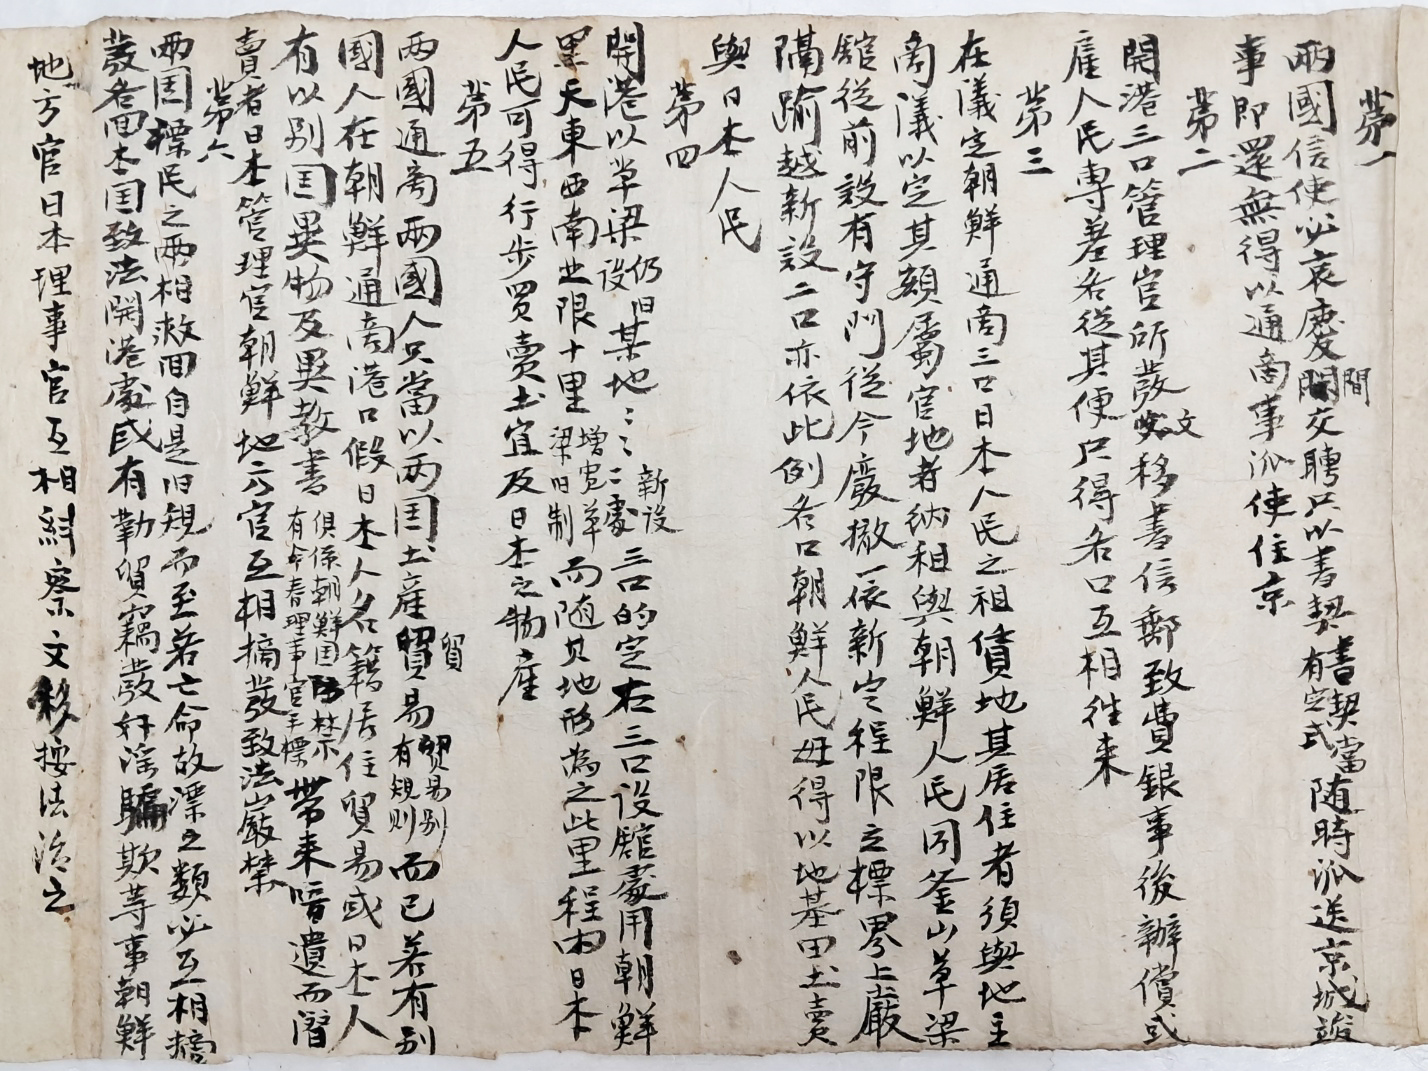 第一
兩國信使必哀慶間交聘只以書契書契當有定式随時派送京城竣
事即還無得以通商事派使住京
第二
開港三口管理官所發文移書信郵致費銀事後辦償或
雇人民専差各從其便只得各口互相往来
第三
在議定朝鮮通商三口日本人民之租賃地其居住者須與地主
商議以定其額屬官地者納租與朝鮮人民同釜山草梁
舘從前設有守門從今廢撤一依新定程限立標界上嚴
隔踰越新設二口亦依此例各口朝鮮人民毋得以地基田土賣
與日本人民
第四
開港以草梁仍旧設某地〻〻新設二處三口的定右三口設舘處用朝鮮
里天東西南北限十里增寛草梁旧制而随其地形為之此里程内日本
人民可得行步買賣土宜及日本之物産
第五
兩國通商兩國人只當以兩国土産貿易貿易別有規則而已若有別
國人在朝鮮通商港口假日本人名籍居住貿易或日本人
有以别国異物及異教書俱係朝鮮国防禁有今春理事官手標帯来暗遺而潛
賣者日本管理官朝鮮地方官互相摘發致法嚴禁
第六
兩国漂民之兩相救回自是旧規而至若亡命故漂之類必互相摘
發各回本国致法開港處或有勒貿竊發奸淫騙欺等事朝鮮
地方官日本理事官互相糾察文移按法治之